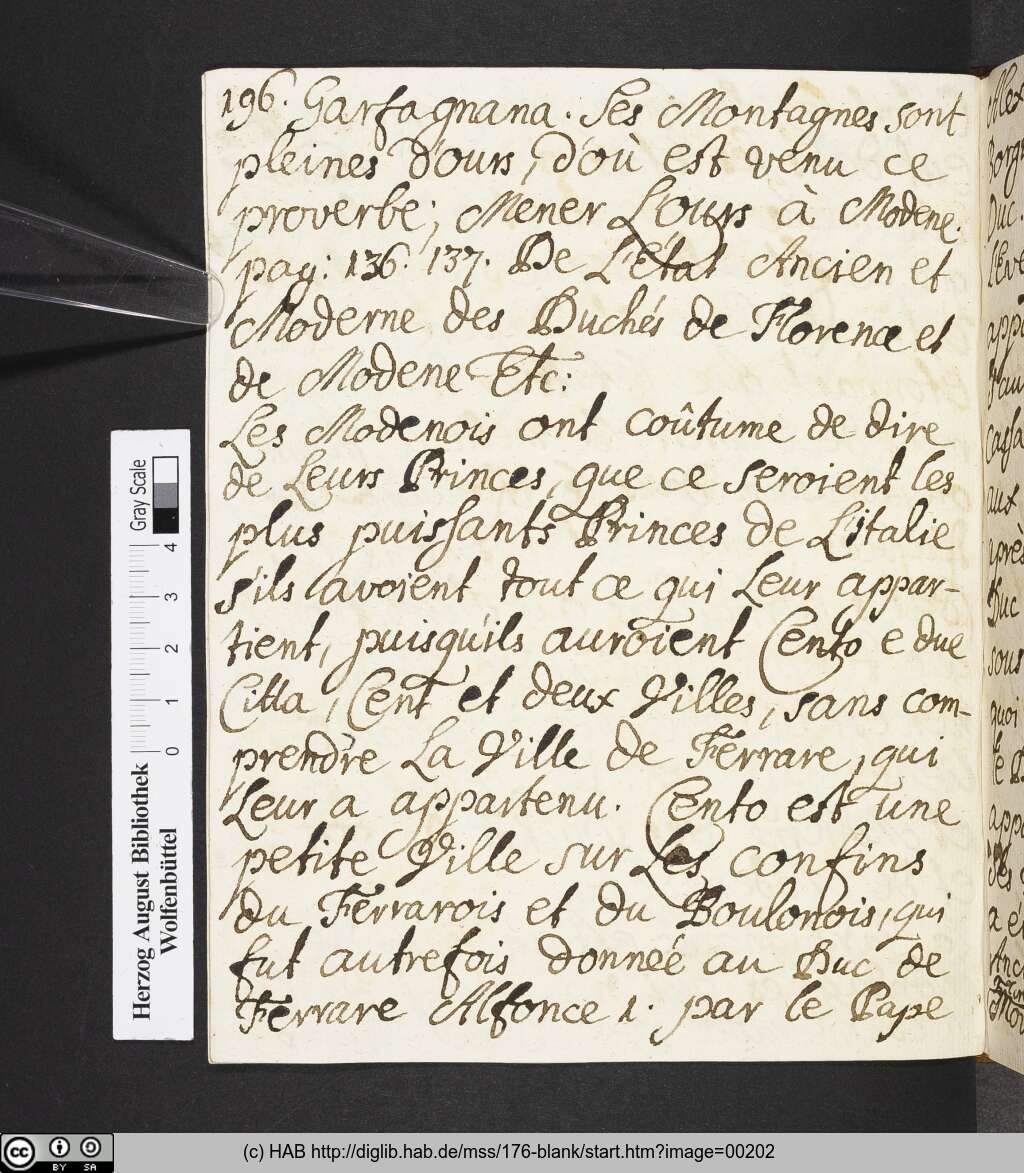 196. Garfagnana. Ses Montagnes sont
pleines d'ours, d'où est venu ce
proverbe; Mener L'ours à Modene.
pag: 136. 137. De L'état Ancien et
Moderne des Duchés de Florence et
de Modene Etc:
Les Modenois ont coûtume de dire
de Leurs Princes, que ce seroient les
plus puissants Princes de L'italie
s'ils avoient tout ce qui Leur appar-
tient, puisqu'ils auroient Cento e due
Citta, Cent et deux Villes, sans com-
prendre La Ville de Ferrare, qui
Leur a appartenu. Cento est une
petite Ville sur Les confins
du Ferrarois et du Boulonois, qui
fut autrefois donnée au Duc de
Ferrare Alfonce 1. par le Pape
Duc
aux
après
Duc
sous
quoi
Gray Scale
4
3
2
1
0
Herzog August Bibliothek
Wolfenbüttel
cc BY SA
(c) HAB http://diglib.hab.de/mss/176-blank/start.htm?image=00202